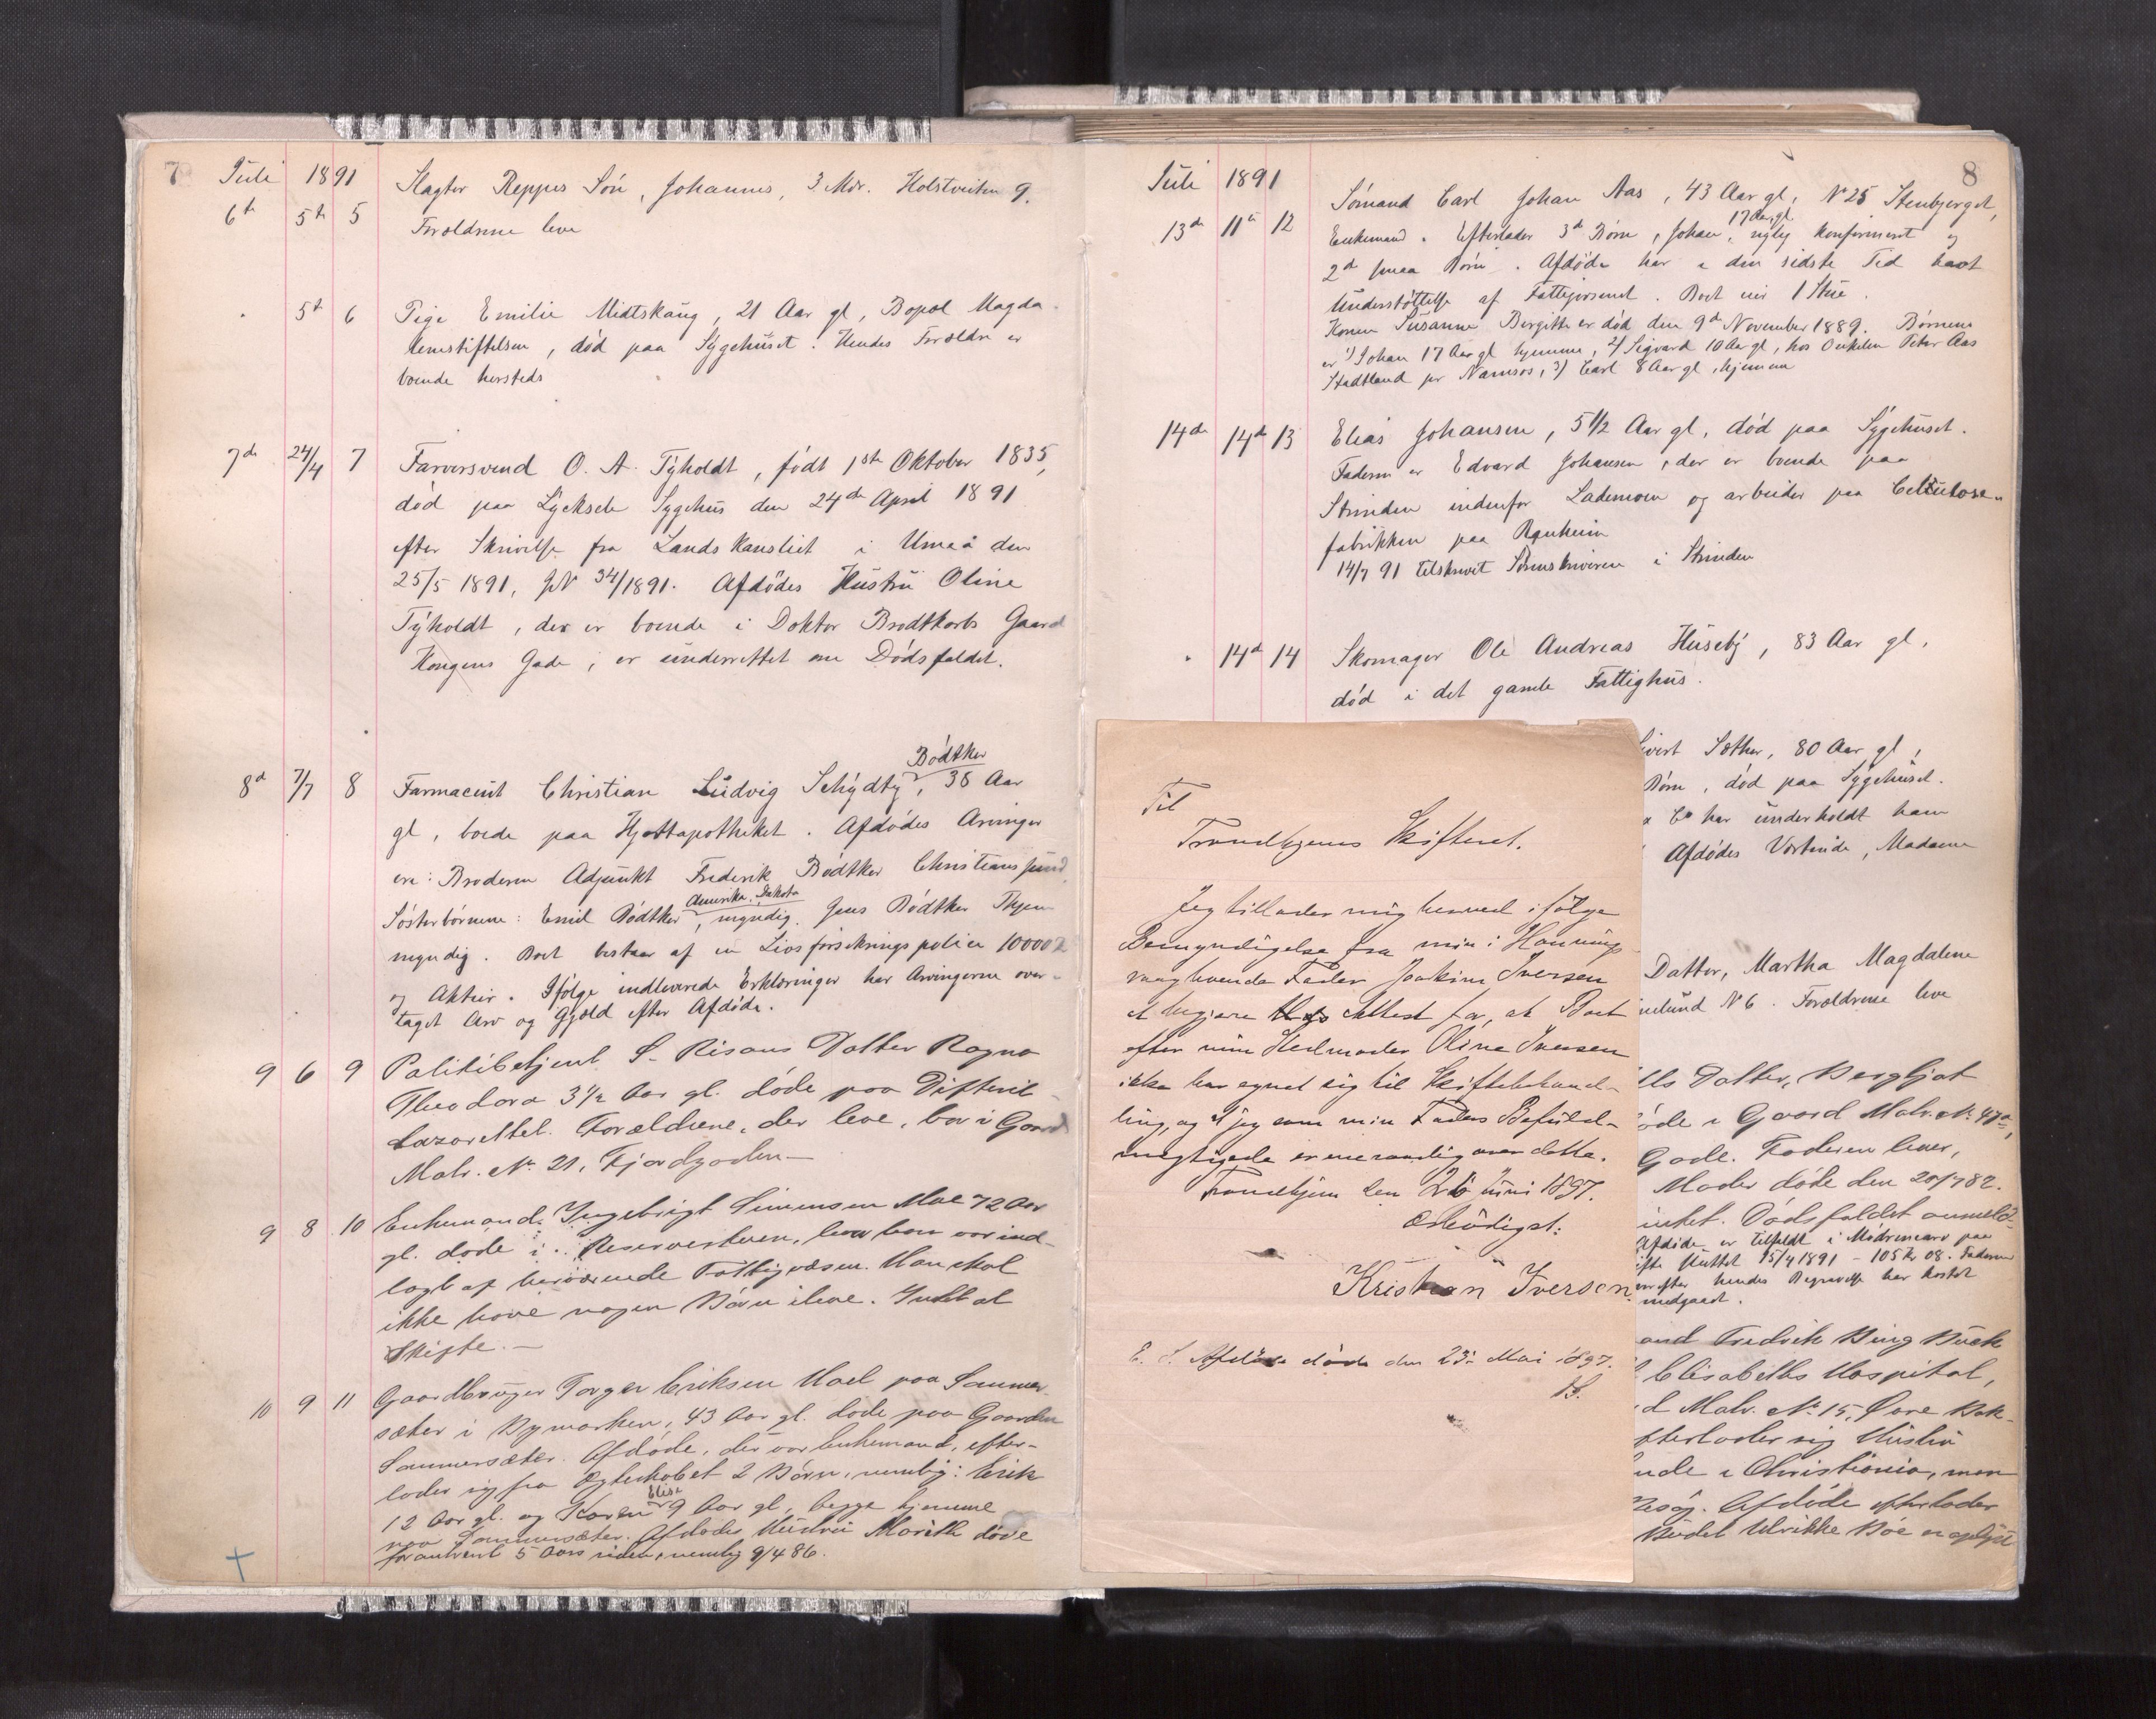 7 Juli 1891 Slagter Reppes Søn, Johannes, 3 Mdr. Holstveiten 9.
6te 5te 5 Forældrene leve
" 5te 6 Pige Emilie Midtskaug, 21 Aar gl, Bopæl Magda-
lenestiftelsen, død paa Sygehuset. Hendes Forældre er
boende hersteds
7de 24/4 7 Farversvend O. A. Tyholdt, født 1ste Oktober 1835,
død paa Lycksele Sygehus den 24de April 1891
efter Skrivelse fra Landskansliet i Umeå den
25/5 1891, JN 34/1891. Afdødes Hustru Oline
Tyholdt, der er boende i Doktor Brodtkorbs Gaard
Kongens Gade, er underrettet om Dødsfaldet.
Bødtker
8d 7/7 8 Farmaceut Christian Ludvig Schydtz, 38 Aar
gl, boede paa Hjorteapotheket. Afdødes Arvinger
ere: Broderen Adjunkt Frederik Bødtker Christianssund
Amerika, Dakota
Søsterbørnene: Emil Bødtker, myndig. Jens Bødtker
myndig. Boet bestaar af en Livsforsikringspolice 10000 Kr
og Aktier. Ifølge indleverede Erklæringer har Arvingerne over-
taget Arv og Gjæld efter Afdøde.
9 6 9 Politibetjent S. Risans Datter Ragna
Theodora 3 1/2 Aar gl. døde paa Difterit-
Lazarettet. Forældrene, der leve, bor i Gaard
Matr. No 21, Fjordgaden.—
9 8 10 Enkemand Ingebrigt Simensen Moe 72 Aar
gl. døde i Reservestuen, hvor han var ind-
lagt af herværende Fattigvæsen. Han skal
ikke have nogen Børn ilive. Intet at
Skifte.—
10 9 11 Gaardbruger Torger Eriksen Moel paa Sommer-
sæter i Bymarken, 43 Aar gl. døde paa Gaarden
Sommersæter. Afdøde, der var Enkemand, efter-
lader sig fra Ægteskabet 2 Børn, nemlig: Erik
Elise
12 Aar gl. og Karen 9 Aar gl, begge hjemme
paa Sommersæter. Afdødes Hustru Marith døde
for omtrent 5 Aars siden, nemlig 9/4 86.
8
Juli 1891 Sømand Carl Johan Aas, 43 Aar gl, No 25 Stenbjerget,
17 Aar gl
13de 11te 12 Enkemand. Efterlader 3de Børn, Johan, nylig konfirmeret og
2de smaa Børn. Afdøde har i den sidste Tid havt
Understøttelse af Fattigvæsenet. Boet eier 1 Stue.
Konen Susanne Bergitte er død den 9de November 1889. Børnene
er 1) Johan 17 Aar gl hjemme, 2) Sigvard 10 Aar gl, hos Onkelen Peter Aas
Stadtland pr Namsos, 3) Carl 8 Aar gl, hjemme
14de 14de 13 Elias Johansen, 5 1/2 Aar gl, død paa Sygehuset.
Faderen er Edvard Johansen, der er boende paa
Strinden indenfor Lademoen og arbeider paa Cellulose-
fabrikken paa Ranheim
14/7 91 tilskrevet Sorenskriveren i Strinden
" 14d 14 Skomager Ole Andreas Huseby, 83 Aar gl,
død i det gamle Fattighus.
Sivert Sæther, 80 Aar gl,
Børn, død paa Sygehuset.
Co har underholdt ham
Afdødes Vertinde, Madame
Datter, Martha Magdalene
No 6. Forældrene leve
Datter, Bergljot
døde i Gaard Matr. No. 47a,
Gade. Faderen lever,
Moder døde den 20/7 82.
intet. Dødsfaldet anmeld-
Afdøde er tilfaldt i Mødrenearv paa
Skifte sluttet 15/4 1891 - 105 Kr 08. Faderen
hendes Begravelse har kostet
medgaaet.
Fredrik Bing Buck
Elisabeths Hospital,
Matr. No 15, Øvre Bak-
efterlader sig Hustru
boende i Christiania, men
Besøg. Afdøde efterlader
Budet Ulrikke Bøe er oplyst
Til
Trondhjems Skifteret.
Jeg tillader mig herved ifølge
Bemyndigelse fra min i Honnings-
vaag boende Fader Joakim Iversen
at begjære Attest for, at Boet
efter min Stedmoder Oline Iversen
ikke har egnet sig til Skiftebehand-
ling, og at jeg som min Faders Befuld-
mægtigede er eneraadig over dette.
Trondhjem den 26 Juni 1897.
Ærbødigst:
Kristian Iversen
E. S. Afdøde døde den 23de Mai 1897.